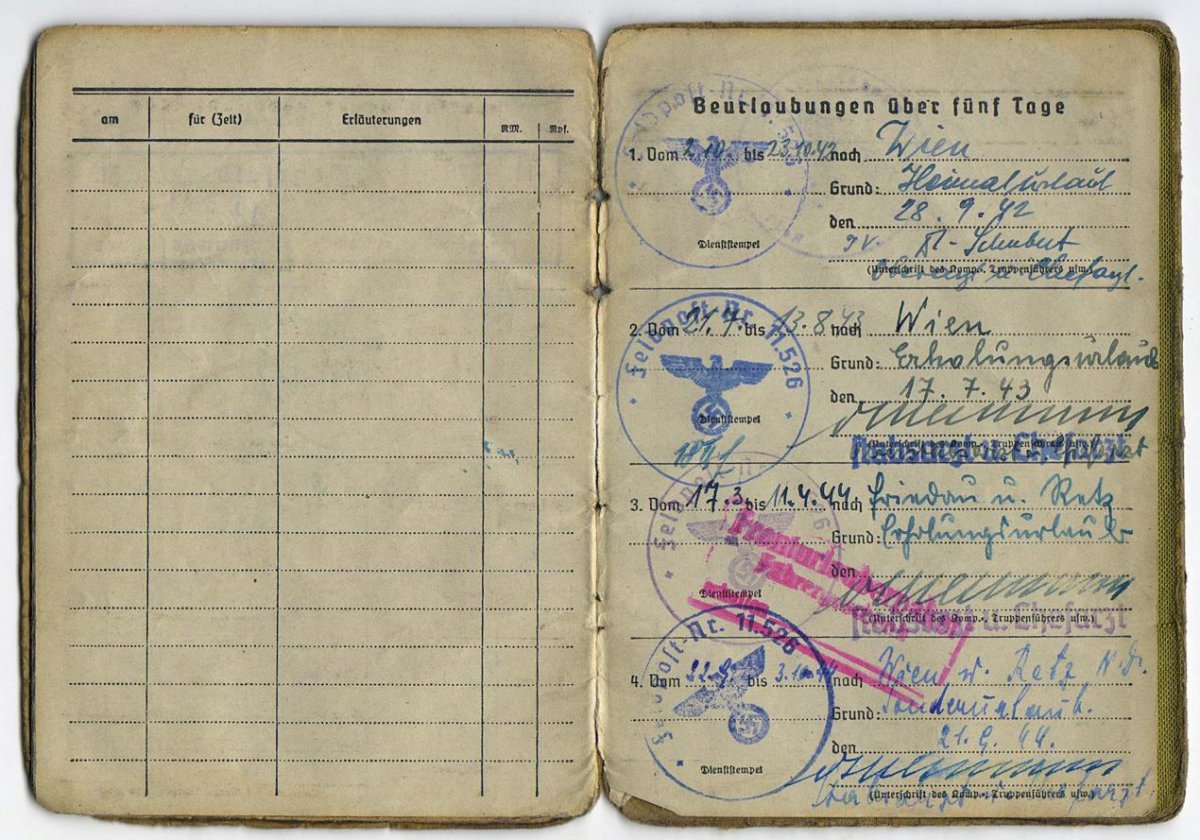 am für (Zeit) Erläuterungen RM. Rpf.
Beurlaubungen über fünf Tage
Feldpost-Nr. 5
1. Vom 2.10. bis 23.10.42 nach Wien
Grund: Heimaturlaub
den 28.9.42
Dienststempel
I.V. Schubert
(Unterschrift des Komp.-, Truppenführers usw.)
Oberarzt u. Chefarzt.
Feldpost-Nr. 11.526
2. Vom 21.7. bis 13.8.43 nach Wien
Grund: Erholungsurlaub
den 17.7.43
Dienststempel
(Unterschrift des Komp.-, Truppenführers usw.)
Stabsarzt u. Chefarzt
Feldpost
3. Vom 17.3 bis 11.4.44 nach Friedau u. Retz
Grund: Erholungsurlaub
den
Dienststempel
(Unterschrift des Komp.-, Truppenführers usw.)
Stabsarzt u. Chefarzt
Feldpost-Nr. 11.526
4. Vom 22.9. bis 3.10.44 nach Wien u. Retz N.D.
Grund: Sonderurlaub.
den 21.9.44.
Dienststempel
(Unterschrift des Komp.-, Truppenführers usw.)
Stabsarzt u. Chefarzt